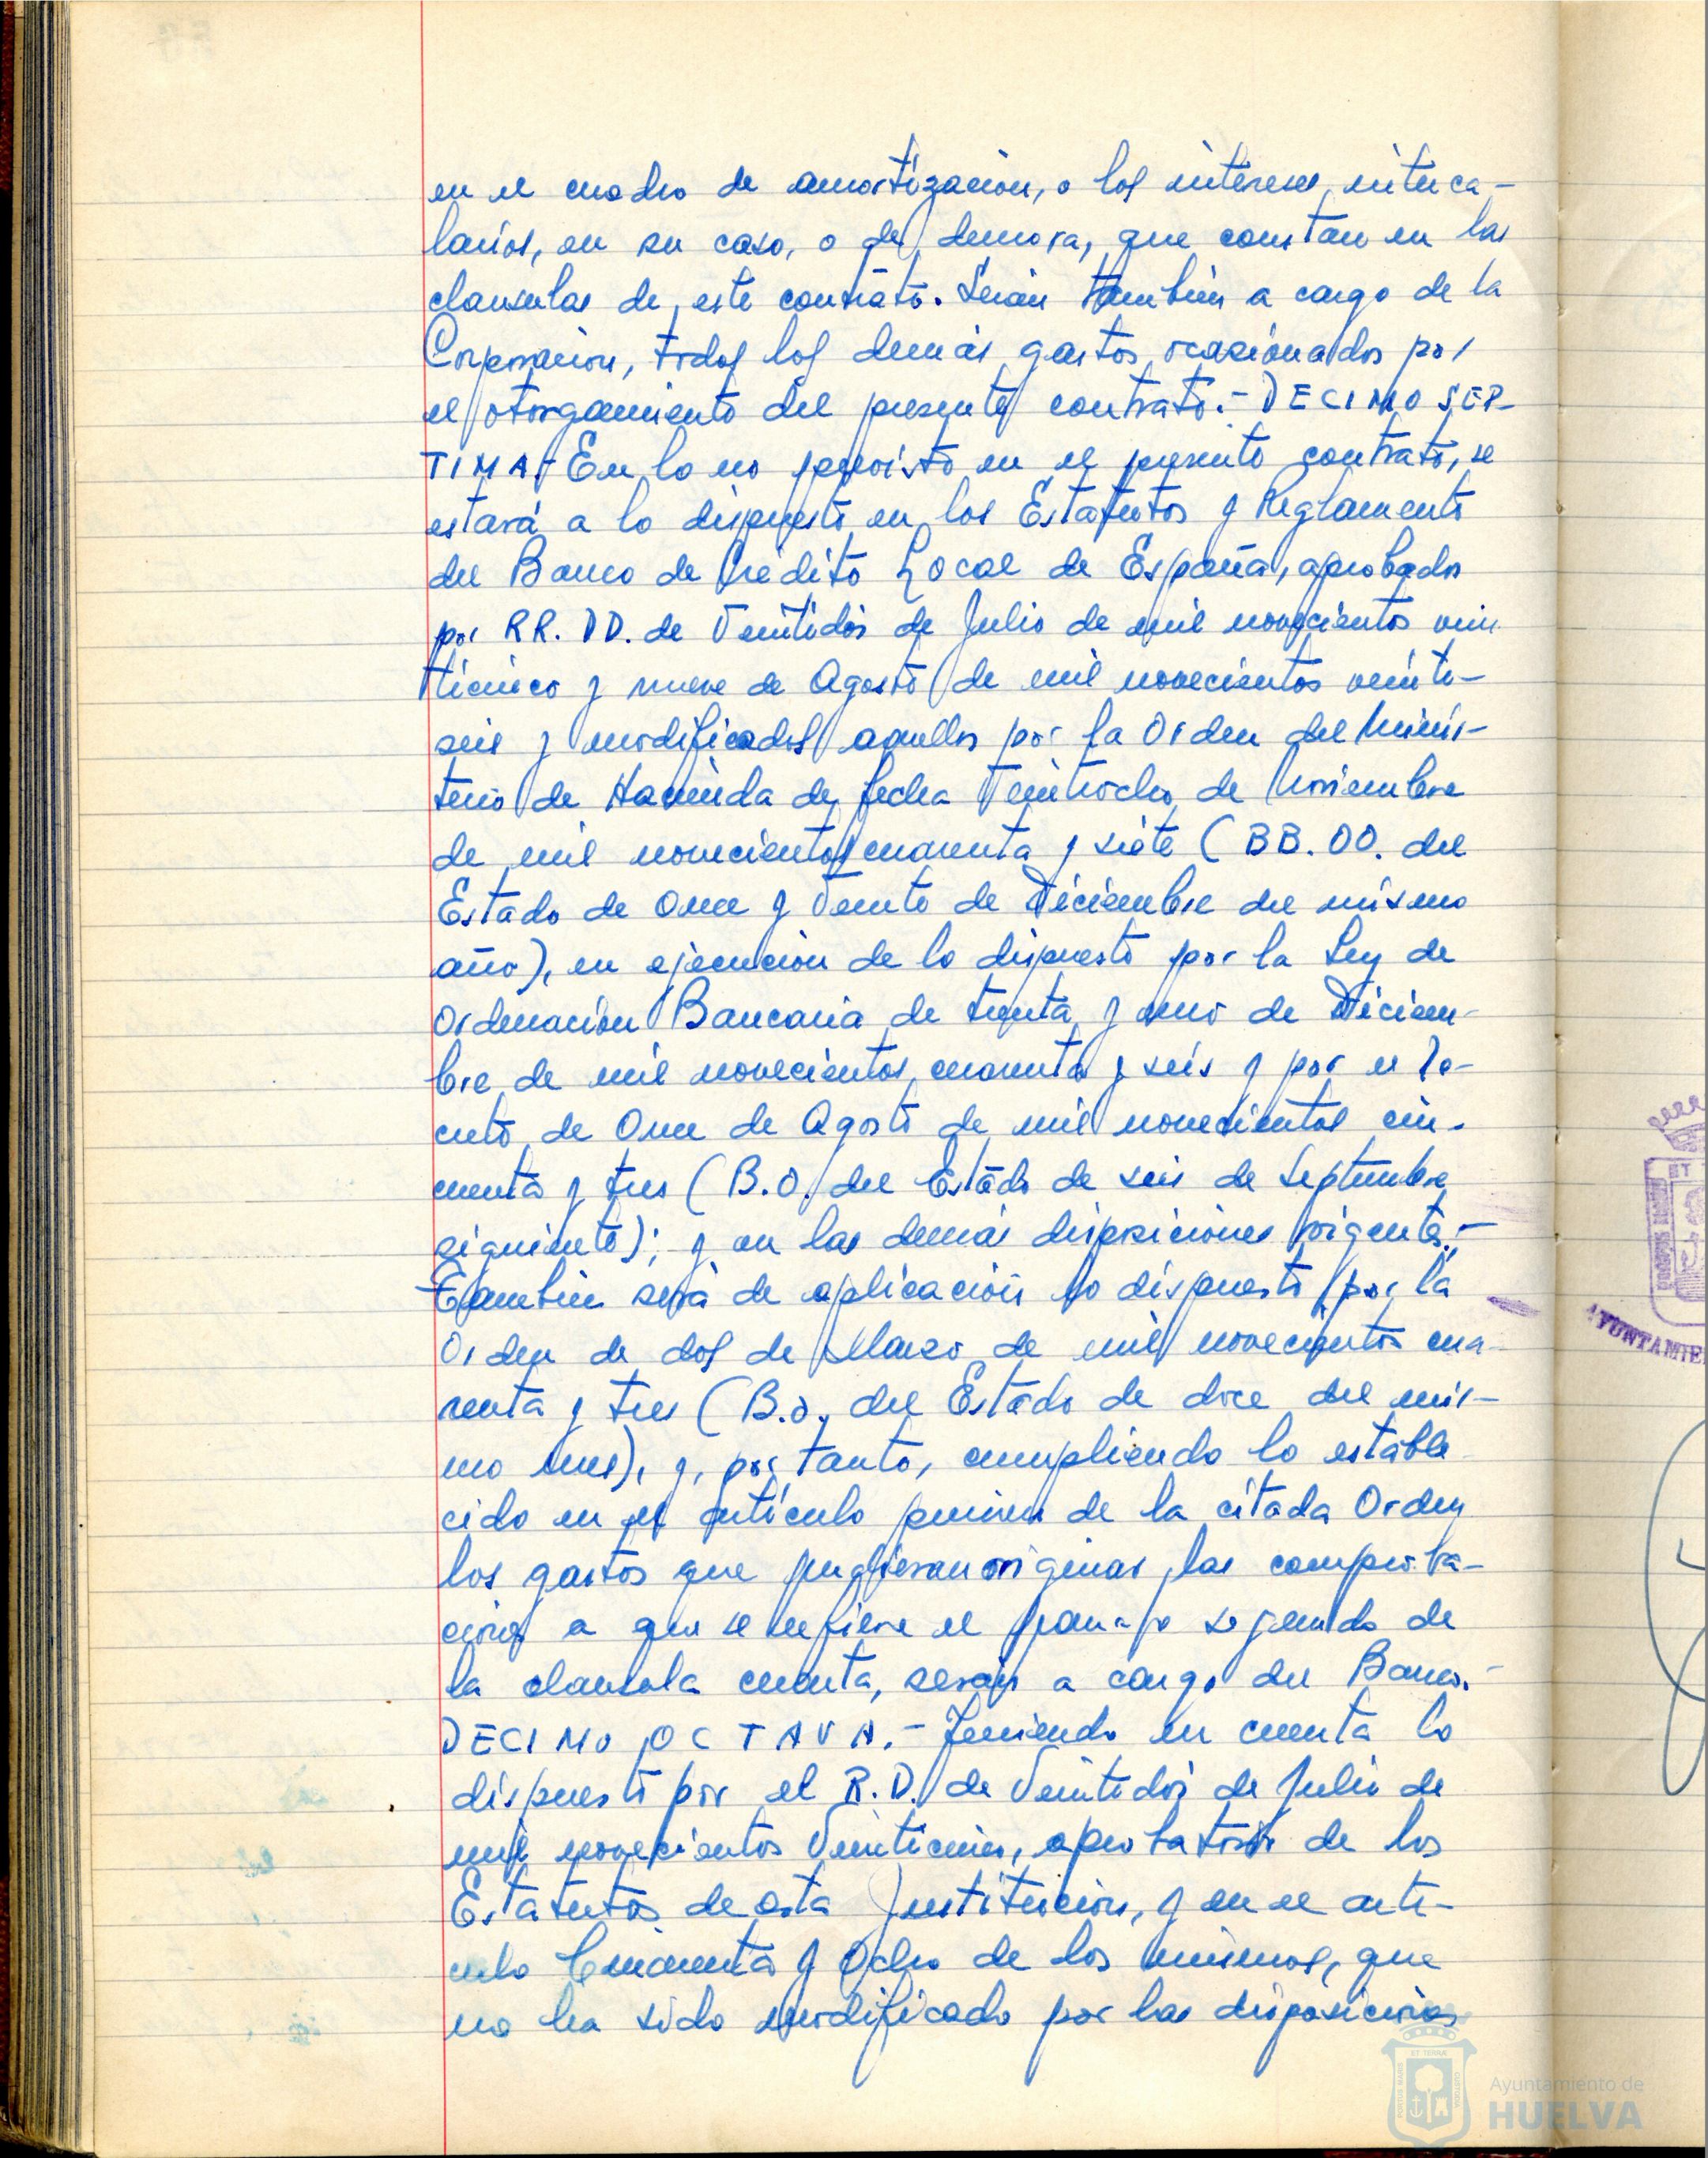 en el cuadro de amortización, o los intereses, interca-
larios, en su caso, o de demora, que constan en las
clausulas de este contrato. Serán también a cargo de la
Corporación, todos los demás gastos ocasionados por
el otorgamiento del presente contrato.- DECIMO SEP-
TIMA.- En lo no previsto en el presente contrato, se
estará a lo dispuesto en los Estatutos y Reglamento
del Banco de Crédito Local de España, aprobados
por RR. DD. de Veintidós de Julio de mil novecientos vein
ticinco y nueve de Agosto de mil novecientos veinti-
seis y modificados aquellos por la Orden del Minis-
terio de Hacienda de fecha Veintiocho de Noviembre
de mil novecientos cuarenta y siete (BB. OO. del
Estado de Once y Veinte de Diciembre del mismo
año), en ejecución de lo dispuesto por la Ley de
Ordenación Bancaria de treinta y uno de Diciem-
bre de mil novecientos cuarenta y seis y por el De-
creto de Once de Agosto de mil novecientos cin-
cuenta y tres (B.O. del Estado de seis de Septiembre
siguiente); y en las demás disposiciones vigentes.-
También será de aplicación lo dispuesto por la
Orden de dos de Marzo de mil novecientos cua-
renta y tres (B.O. del Estado de doce del mis-
mo mes), y, por tanto, cumpliendo lo estable
cido en el artículo primero de la citada Orden
los gastos que pudieran originar las comproba-
ciones a que se refiere el parrafo segundo de
la clausula cuarta, serán a cargo del Banco.-
DECIMO OCTAVA.- Teniendo en cuenta lo
dispuesto por el R.D. de Veintidós de Julio de
mil novecientos Veinticinco, aprobatorio de los
Estatutos de esta Institución, y en el artí-
culo Cincuenta y Ocho de los mismos, que
no ha sido modificado por las disposiciones
AYUNTAMIE
Ayuntamiento de
HUELVA